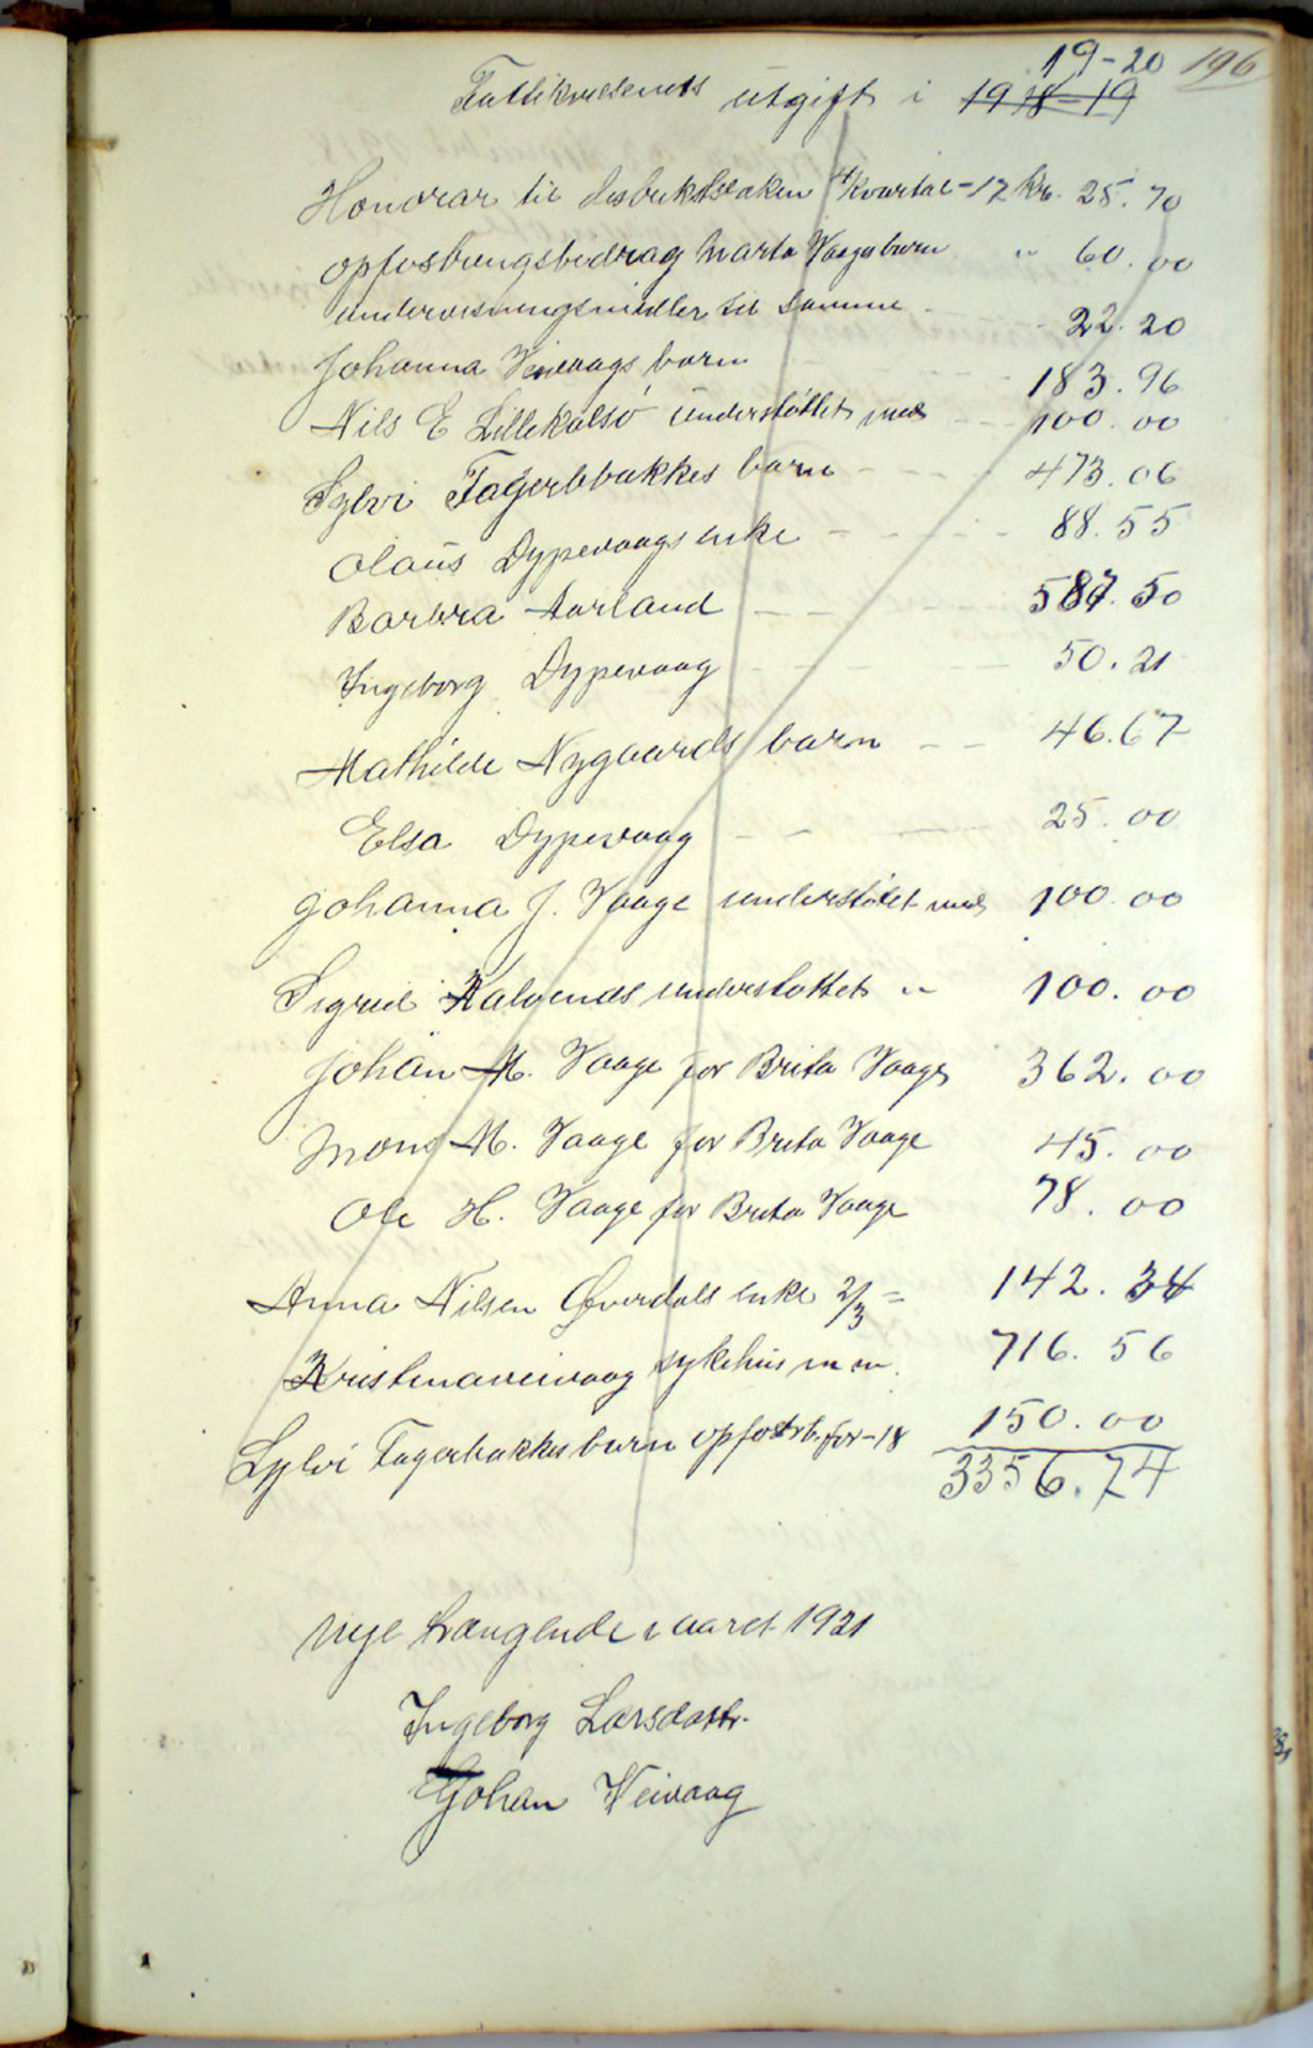 19-20 196
Fattikvæsenets utgift i 1918-19
Honorar til distriktslæken 4 kvartal-17 kr. 25.70
opfostringsbidrag Marta Vaages barn " 60.00
undervisningsmidler til samme - 22.20
Johanna Veivaags barn - - - 183.96
Nils E Lillekalsö understöttet med - - 100.00
Sylvi Fagerbakkes barn - - - - 473.06
Olaus Dypevaags enke - - - - - 88.55
Barbra Aarland - - - - - 587.50
Ingeborg Dypevaag - - - - 50.21
Mathilde Nygaards barn - - 46.67
Elsa Dypevaag - - - - 25.00
Johanna J. Vaage understöttet med 100.00
Sigrid Kalvenes understottet " 100.00
Johan M. Vaage for Brita Vaage 362.00
Mons M. Vaage for Brita Vaage 45.00
Ole H. Vaage for Brita Vaage 78.00
Anna Nilsen Øverdals enke 2/3 = 142.34
Kristina Veivaag sykehus m m. 716.56
Sylvi Fagerbakkes barn opfostrb. for-18 150.00
3356.74
Nye trængende i aaret 1921
Ingeborg Larsdattr.
Johan Veivaag